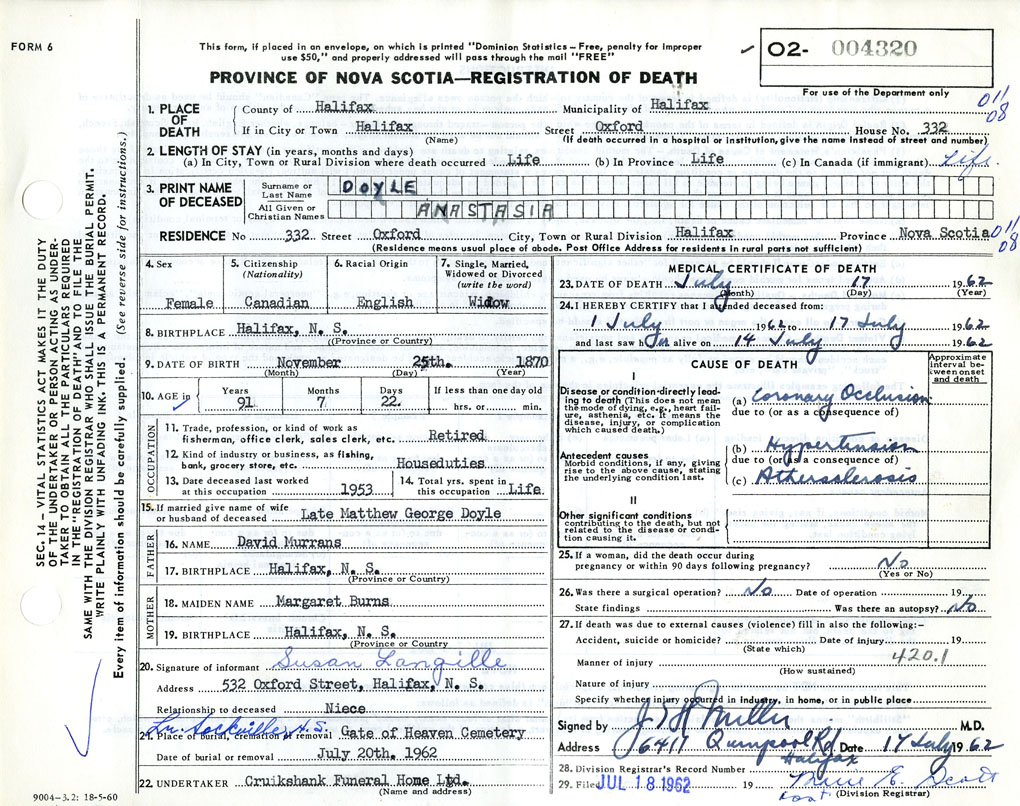 FORM 6
This form, if placed in an envelope, on which is printed "Dominion Statistics – Free, penalty for improper
use $50," and properly addressed will pass through the mail "FREE"
O2- 004320
PROVINCE OF NOVA SCOTIA—REGISTRATION OF DEATH
For use of the Department only
011
08
1. PLACE OF DEATH
County of Halifax Municipality of Halifax
If in City or Town Halifax Street Oxford House No. 332
(Name) (If death occurred in a hospital or institution, give the name instead of street and number)
2. LENGTH OF STAY (in years, months and days)
(a) In City, Town or Rural Division where death occurred Life (b) In Province Life (c) In Canada (if immigrant) Life
3. PRINT NAME OF DECEASED
Surname or Last Name DOYLE
All Given or Christian Names ANASTASIA
RESIDENCE No 332 Street Oxford City, Town or Rural Division Halifax Province Nova Scotia 011
08
(Residence means usual place of abode. Post Office Address for residents in rural parts not sufficient)
4. Sex
Female
5. Citizenship
(Nationality)
Canadian
6. Racial Origin
English
7. Single, Married,
Widowed or Divorced
(write the word)
Widow
8. BIRTHPLACE Halifax, N. S.
((Province or Country)
9. DATE OF BIRTH November 25th. 1870
(Month) (Day) (Year)
10. AGE in
Years Months Days If less than one day old
91 7 22. hrs. or min.
OCCUPATION
11. Trade, profession, or kind of work as
fisherman, office clerk, sales clerk, etc. Retired
12. Kind of industry or business, as fishing,
bank, grocery store, etc. Houseduties
13. Date deceased last worked
at this occupation 1953
14. Total yrs. spent in
this occupation Life
15. If married give name of wife
or husband of deceased Late Matthew George Doyle
FATHER
16. NAME David Murrans
17. BIRTHPLACE Halifax, N. S.
(Province or Country)
MOTHER
18. MAIDEN NAME Margaret Burns
19. BIRTHPLACE Halifax, N. S.
(Province or Country
20. Signature of informant Susan Langille
Address 532 Oxford Street, Halifax, N. S.
Relationship to deceased Niece
Lr. Sackville, N.S.
21. Place of burial, cremation or removal Gate of Heaven Cemetery
Date of burial or removal July 20th. 1962
22. UNDERTAKER Cruikshank Funeral Home Ltd.
(Name and address)
MEDICAL CERTIFICATE OF DEATH
23. DATE OF DEATH July 17 1962
(Month) (Day) (Year)
24. I HEREBY CERTIFY that I attended deceased from:
1 July 1962 to 17 July 1962
and last saw her alive on 14 July 1962
CAUSE OF DEATH
Approximate
interval be-
tween onset
and death
I
Disease or condition directly lead-
ing to death (This does not mean
the mode of dying, e.g., heart fail-
ure, asthenia, etc. It means the
disease, injury, or complication
which caused death.)
(a) Coronary Occlusion
due to (or as a consequence of)
Antecedent causes
Morbid conditions, if any, giving
rise to the above cause, stating
the underlying condition last.
(b) Hypertension
due to (or as a consequence of)
(c) Athersclerosis
II
Other significant conditions
contributing to the death, but not
related to the disease or condi-
tion causing it.
25. If a woman, did the death occur during
pregnancy or within 90 days following pregnancy? No
(Yes or No)
26. Was there a surgical operation? No Date of operation 19
State findings Was there an autopsy? No
27. If death was due to external causes (violence) fill in also the following:–
Accident, suicide or homicide? Date of injury 19
(State which)
420.1
Manner of injury
(How sustained)
Nature of injury
Specify whether injury occurred in industry, in home, or in public place
Signed by J H Miller M.D.
Address 6417 Quinpool Rd Date 17 July 1962
Halifax
28. Division Registrar's Record Number
29. Filed JUL 18 1962 19 Marie E. Scott
(Division Registrar)
SEC. 14 – VITAL STATISTICS ACT MAKES IT THE DUTY
OF THE UNDERTAKER OR PERSON ACTING AS UNDER-
TAKER TO OBTAIN ALL THE PARTICULARS REQUIRED
IN THE "REGISTRATION OF DEATH" AND TO FILE THE
SAME WITH THE DIVISION REGISTRAR WHO SHALL ISSUE THE BURIAL PERMIT.
WRITE PLAINLY WITH UNFADING INK. THIS IS A PERMANENT RECORD.
Every item of information should be carefully supplied. (See reverse side for instructions.)
9004-3.2: 18-5-60